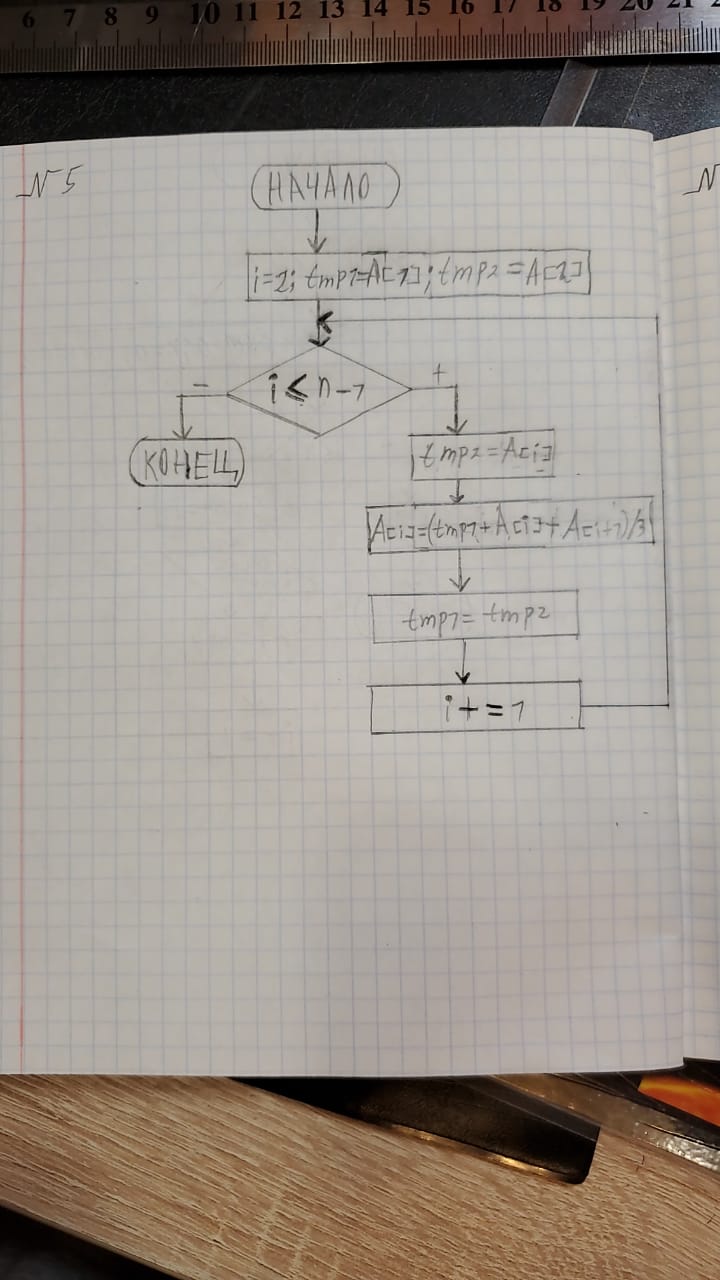 6 7 8 9 10 11 12 13 14 15 16 17 18 19 20 21
№5
№
НАЧАЛО
i=2; tmp1=A[1]; tmp2=A[2]
i≤n-1
-
+
КОНЕЦ
tmp2=A[i]
A[i]=(tmp1+A[i]+A[i+1)/3
tmp1=tmp2
i+=1